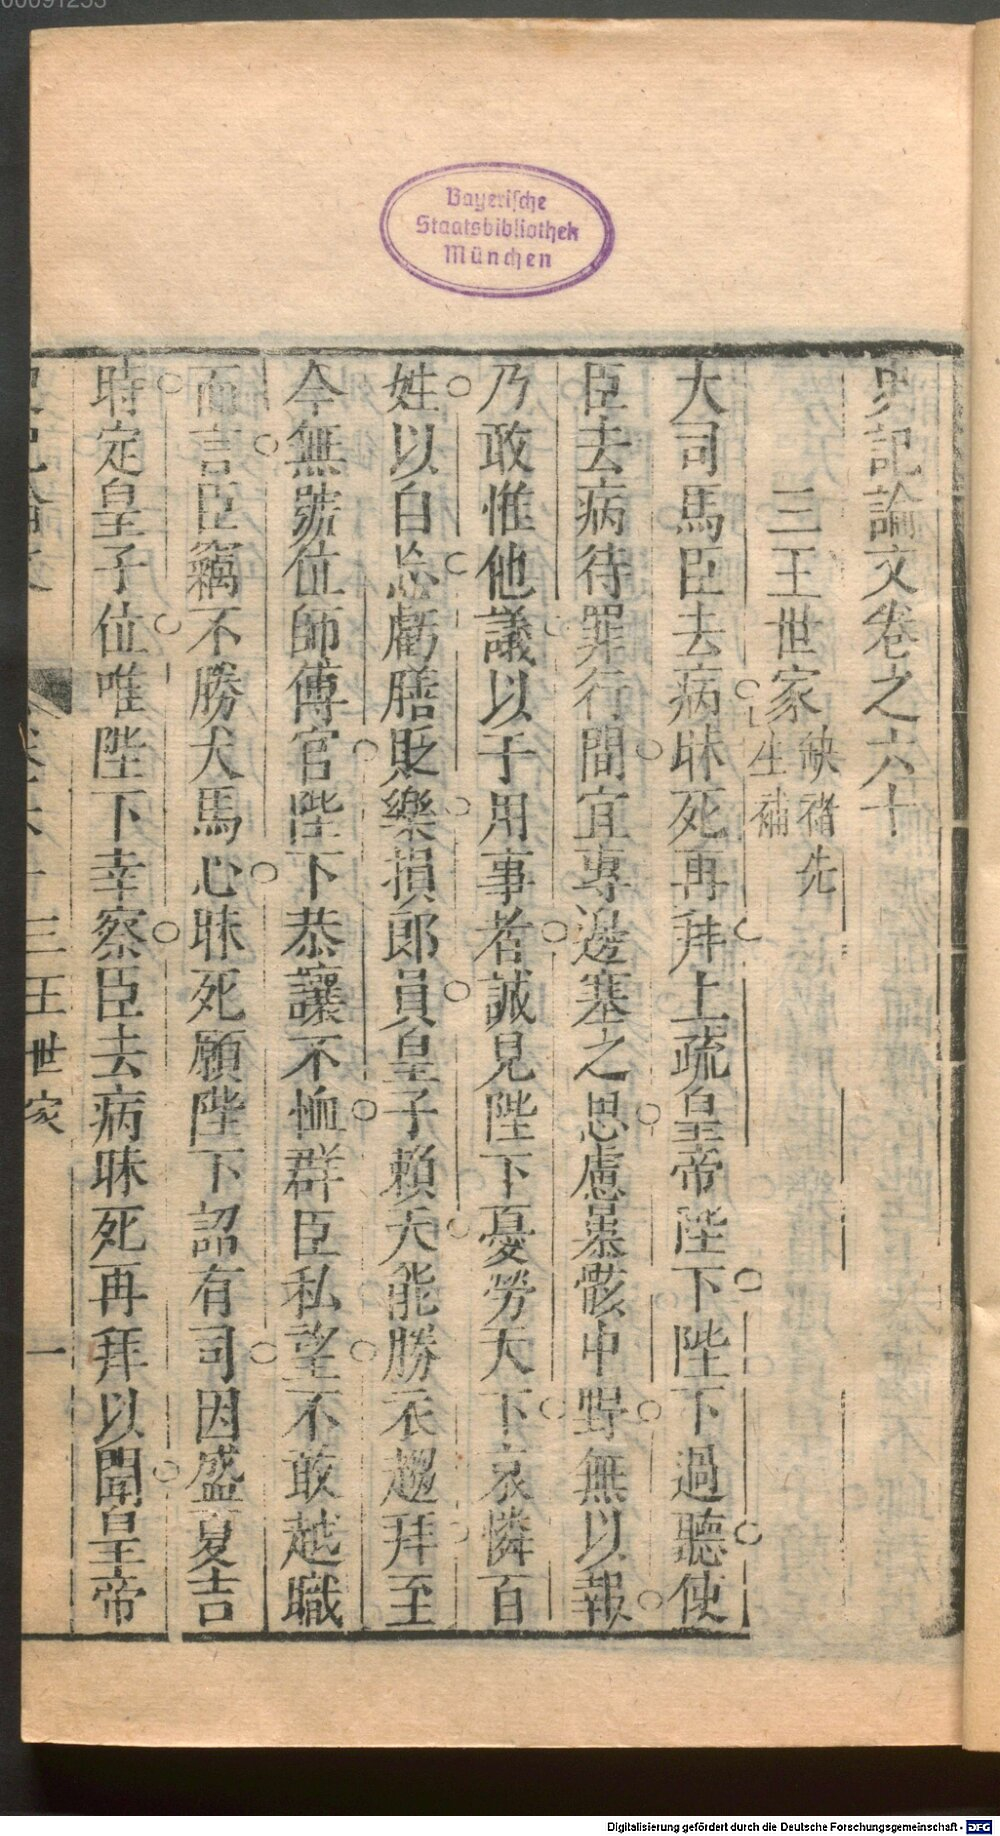 00091253
Bayerische
Staatsbibliothek
München
史記論文卷之六十
三王世家
缺褚先
生補
大司馬臣去病昧死再拜上疏皇帝陛下陛下過聽使
臣去病待罪行間宜專邊塞之思慮暴骸中野無以報
乃敢惟他議以干用事者誠見陛下憂勞天下哀憐百
姓以自忘虧膳貶樂損郎員皇子賴天能勝衣趨拜至
今無號位師傅官陛下恭讓不恤群臣私望不敢越職
而言臣竊不勝犬馬心昧死願陛下詔有司因盛夏吉
時定皇子位唯陛下幸察臣去病昧死再拜以聞皇帝
史記論文 卷六十 三王世家 一
Digitalisierung gefördert durch die Deutsche Forschungsgemeinschaft - DFG